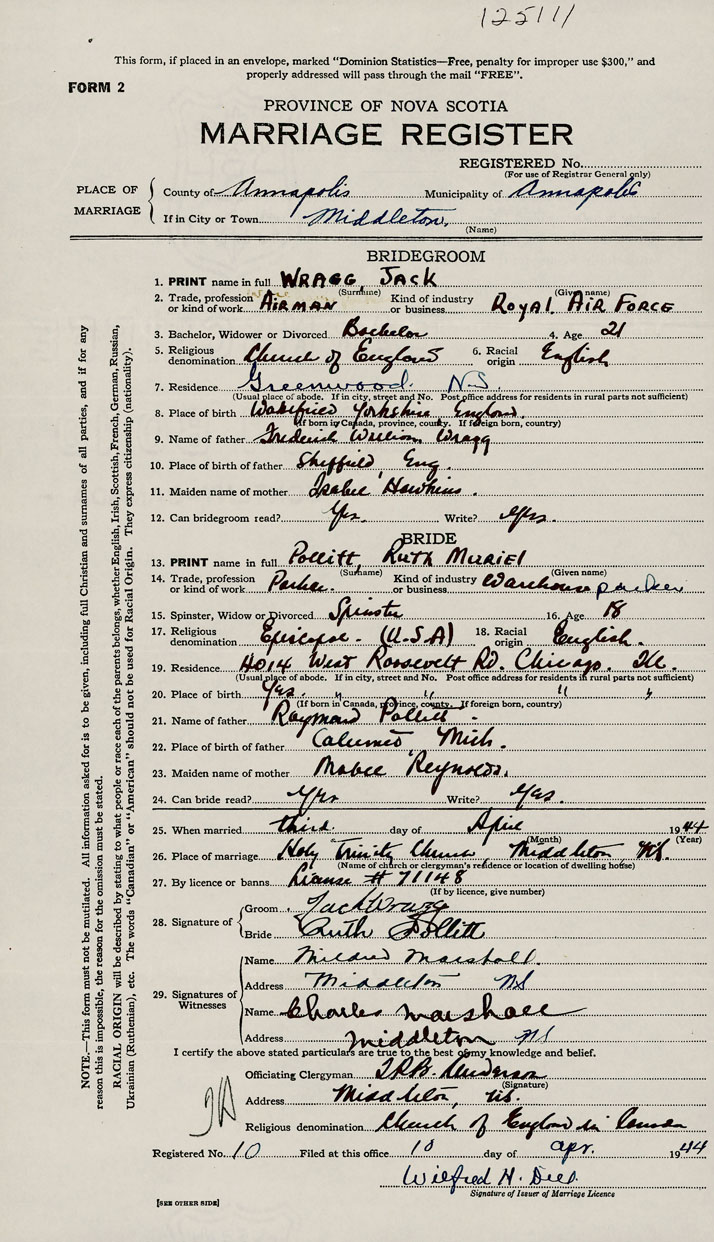 12511
This form, if placed in an envelope, marked “Dominion Statistics—Free, penalty for improper use $300,” and
properly addressed will pass through the mail “FREE”.
FORM 2
PROVINCE OF NOVA SCOTIA
MARRIAGE REGISTER
REGISTERED No.
(For use of Registrar General only)
PLACE OF MARRIAGE
County of Annapolis Municipality of Annapolis
If in City or Town Middleton,
(Name)
BRIDEGROOM
1. PRINT name in full WRAGG, JACK
(Surname) (Given name)
2. Trade, profession or kind of work AIRMAN Kind of industry or business ROYAL AIR FORCE
3. Bachelor, Widower or Divorced Bachelor 4. Age 21
5. Religious denomination Church of England 6. Racial origin English
7. Residence Greenwood N.S.
(Usual place of abode. If in city, street and No. Post office address for residents in rural parts not sufficient)
8. Place of birth Wakefield Yorkshire England.
(If born in Canada, province, county. If foreign born, country)
9. Name of father Frederick William Wragg
10. Place of birth of father Sheffield, Eng.
11. Maiden name of mother Isabel Hawkins.
12. Can bridegroom read? Yes. Write? Yes.
BRIDE
13. PRINT name in full Pollitt, RUTH MURIEl
(Surname) (Given name)
14. Trade, profession or kind of work Packer. Kind of industry or business Warehouse packer
15. Spinster, Widow or Divorced Spinster 16. Age 18
17. Religious denomination Episcopal. (U.S.A) 18. Racial origin English.
19. Residence 4014 West Roosevelt RD. Chicago. Ill.
(Usual place of abode. If in city, street and No. Post office address for residents in rural parts not sufficient)
20. Place of birth Yes. " " " "
(If born in Canada, province, county. If foreign born, country)
21. Name of father Raymond Pollitt.
22. Place of birth of father Calumet Mich.
23. Maiden name of mother Mabel Reynolds.
24. Can bride read? Yes Write? Yes.
25. When married third day of April 1944
(Month) (Year)
26. Place of marriage Holy Trinity Church, Middleton NS.
(Name of church or clergyman's residence or location of dwelling house)
27. By licence or banns License # 71148
(If by licence, give number)
28. Signature of Groom Jack Wragg
Bride Ruth Pollitt
29. Signatures of Witnesses
Name Mildred Marshall.
Address Middleton NS
Name Charles Marshall
Address Middleton NS
I certify the above stated particulars are true to the best of my knowledge and belief.
Officiating Clergyman Anderson
(Signature)
Address Middleton, NS.
Religious denomination Church of England in Canada
Registered No. 10 Filed at this office 10 day of Apr. 1944
Wilfred H.
Signature of Issuer of Marriage Licence
[SEE OTHER SIDE]
NOTE.—This form must not be mutilated. All information asked for is to be given, including full Christian and surnames of all parties, and if for any
reason this is impossible, the reason for the omission must be stated.
RACIAL ORIGIN will be described by stating to what people or race each of the parents belongs, whether English, Irish, Scottish, French, German, Russian,
Ukrainian (Ruthenian), etc. The words “Canadian” or “American” should not be used for Racial Origin. They express citizenship (nationality).